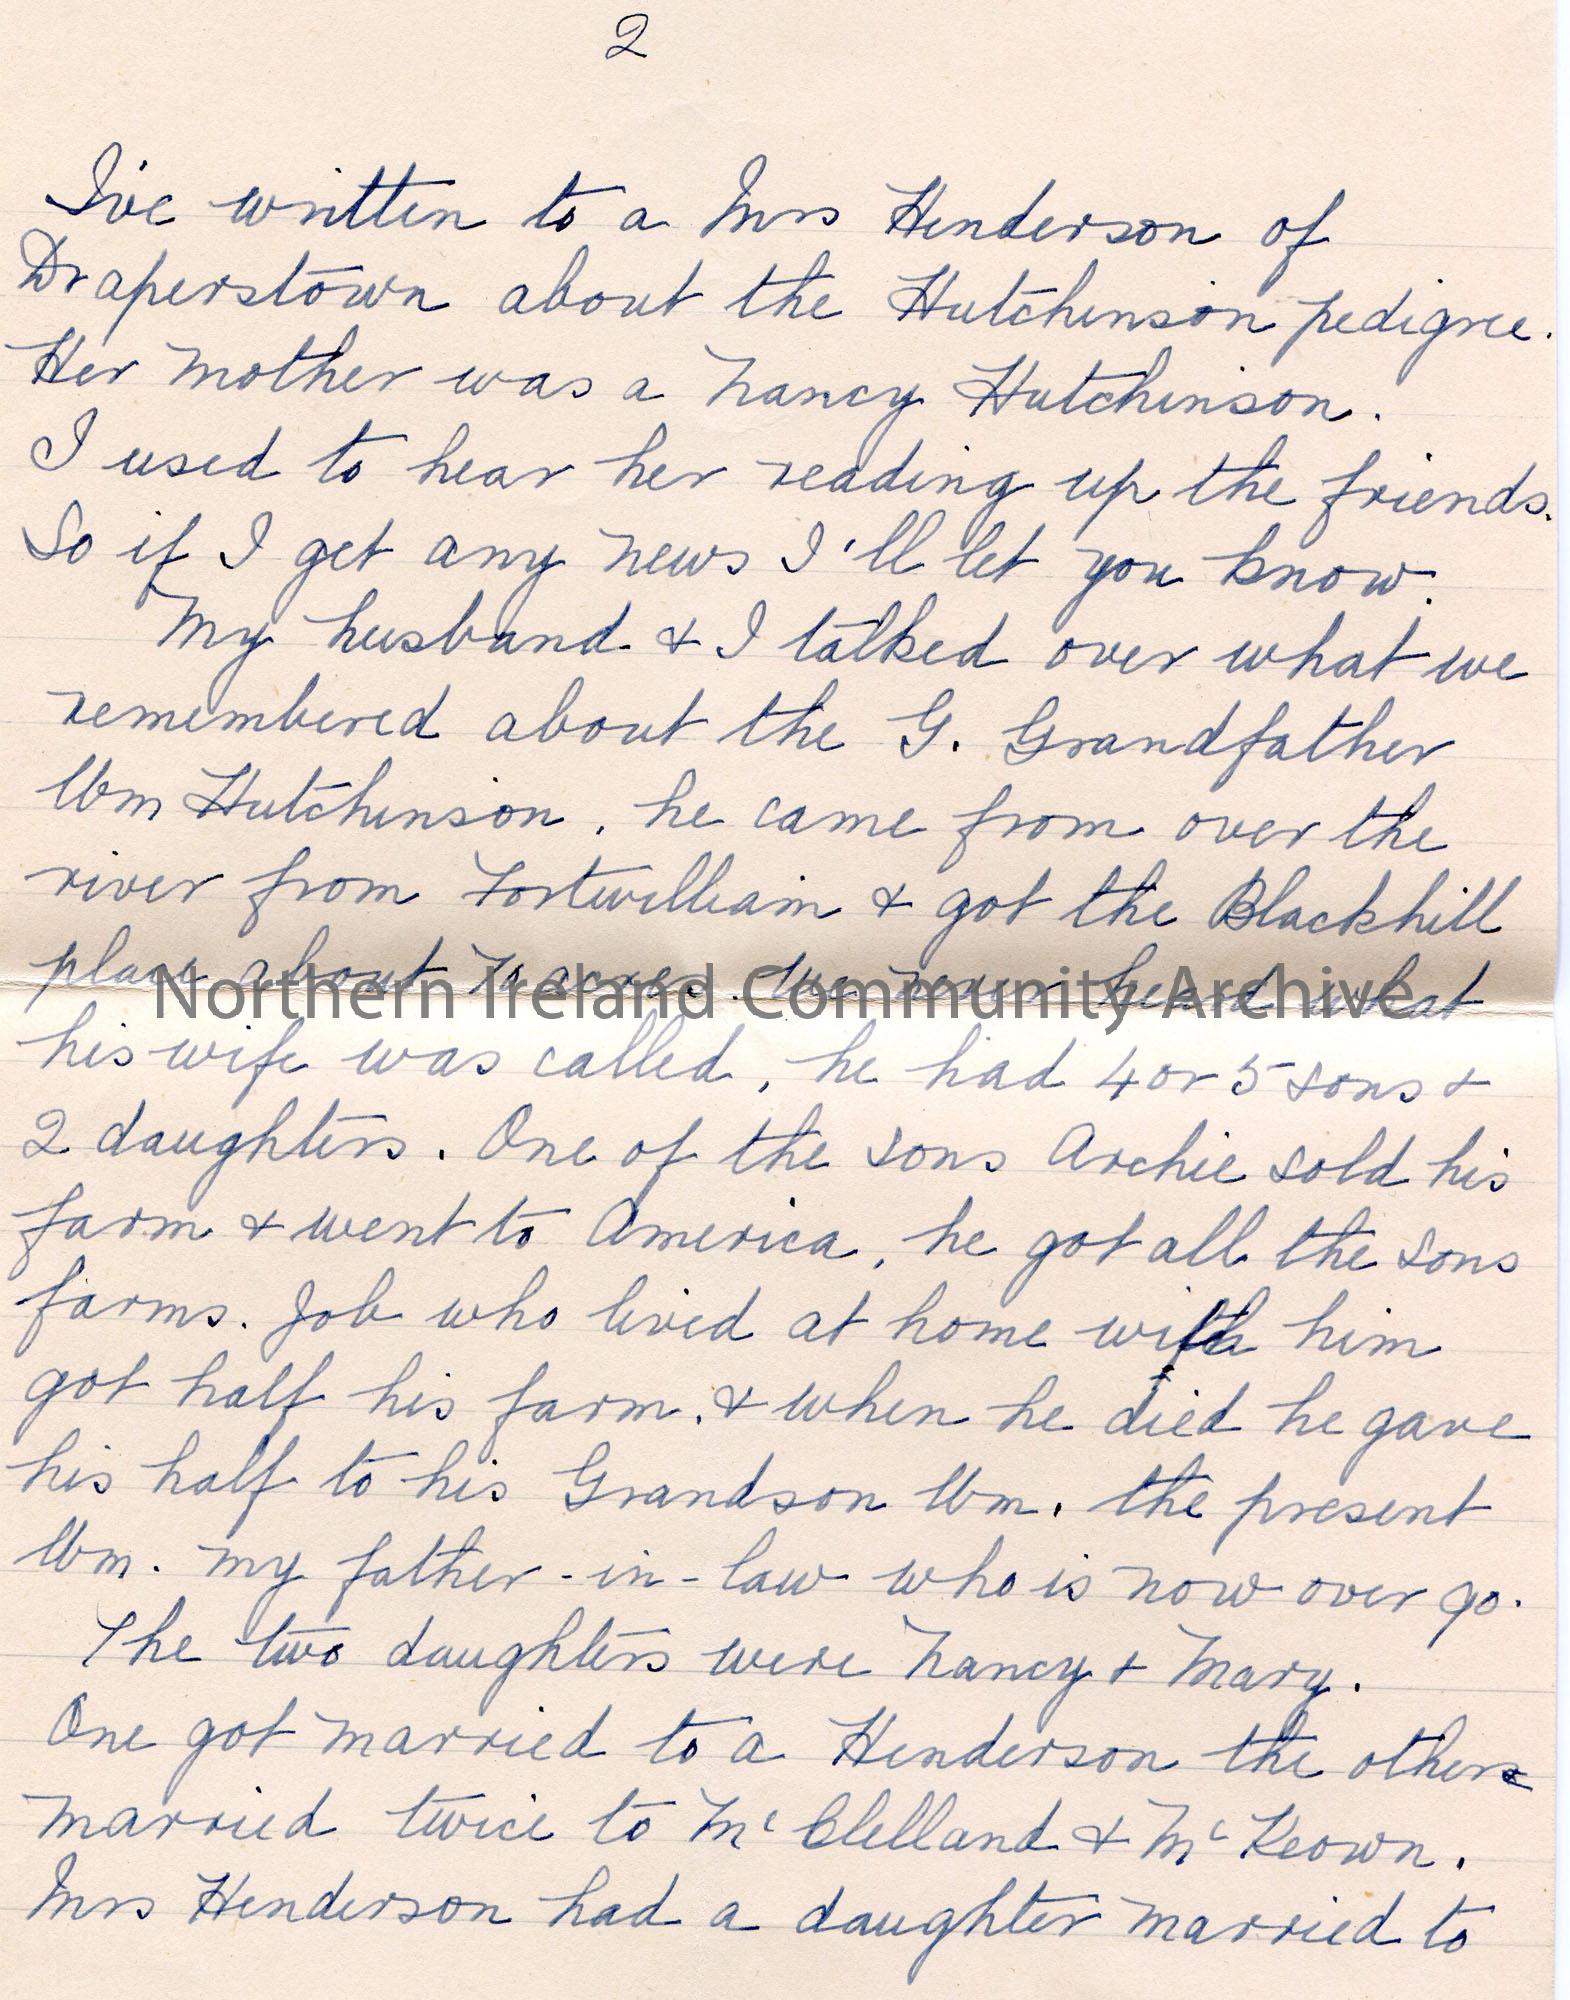 2
I've written to a Mrs Henderson of
Draperstown about the Hutchinson pedigree.
Her mother was a Nancy Hutchinson.
I used to hear her reading up the friends.
So if I get any news I'll let you know.
My husband & I talked over what we
remembered about the G. Grandfather
Wm Hutchinson, he came from over the
river from Fortwilliam & got the Blackhill
place about acres. We never heard what
Northern Ireland Community Archive
his wife was called, he had 4 or 5 sons &
2 daughters. One of the sons Archie sold his
farm & went to America, he got all the sons
farms. Job who lived at home with him
got half his farm, & when he died he gave
his half to his Grandson Wm. the present
Wm. my father-in-law who is now over 90.
The two daughters were Nancy & Mary.
One got married to a Henderson the other
married twice to McClelland & McKeown.
Mrs Henderson had a daughter married to